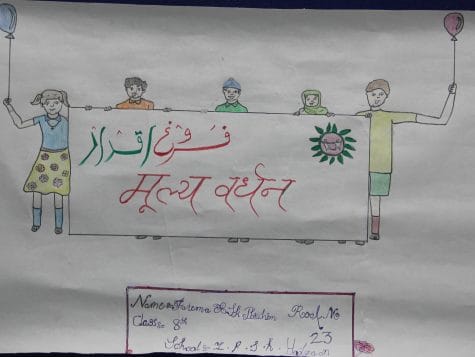 فروغ اقدار
मूल्य वर्धन
Name= Fatema Ibrahim Rool No
Class= 8th 23
School= Z. P.